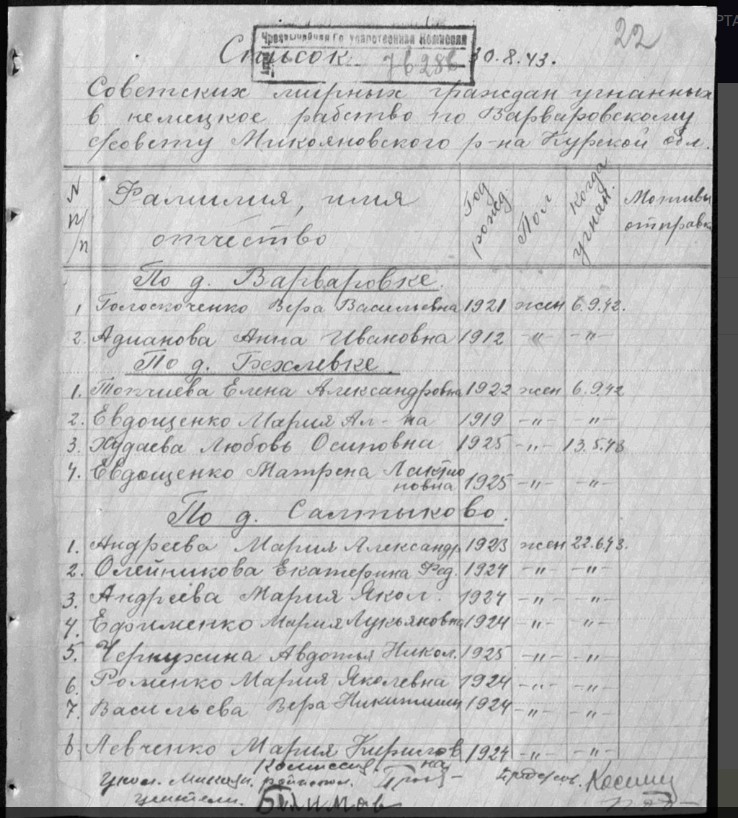 22
Чрезвычайная Государственная Комиссия
Список 30.8.43.
Советских мирных граждан угнанных
в немецкое рабство по Варваровскому
с/совету Микояновского р-на Курской обл.
N п/п Фамилия, имя отчество Год рожд. Пол Когда угнан. Мотивы отправк
По д. Варваровке.
1 Голоскоченко Вера Васильевна 1921 жен 6.9.42.
2. Адианова Анна Ивановна 1912 -"- -"-
По д. Бехлевке.
1. Топчиева Елена Александровна 1922 жен 6.9.42
2. Евдощенко Мария Ал-на 1919 -"- -"-
3. Худаева Любовь Осиповна 1925 -"- 13.5.43
4. Евдощенко Матрена 1925 -"- -"-
По д. Салтыково.
1. Андреева Мария Александр 1923 жен 22.6.43.
2. Олейникова Екатерина Фед. 1924 -"- -"-
3. Андреева Мария Яков. 1924 -"- -"-
4. Ефименко Мария Лукьяновна 1924 -"- -"-
5. Чернухина Авдотья Никол. 1925 -"- -"-
6. Роменко Мария Яковлевна 1924 -"- -"-
7. Васильева Вера Никитишн 1924 -"- -"-
8. Левченко Мария Кирилов 1924 -"- -"-
на
Комиссия
учители.